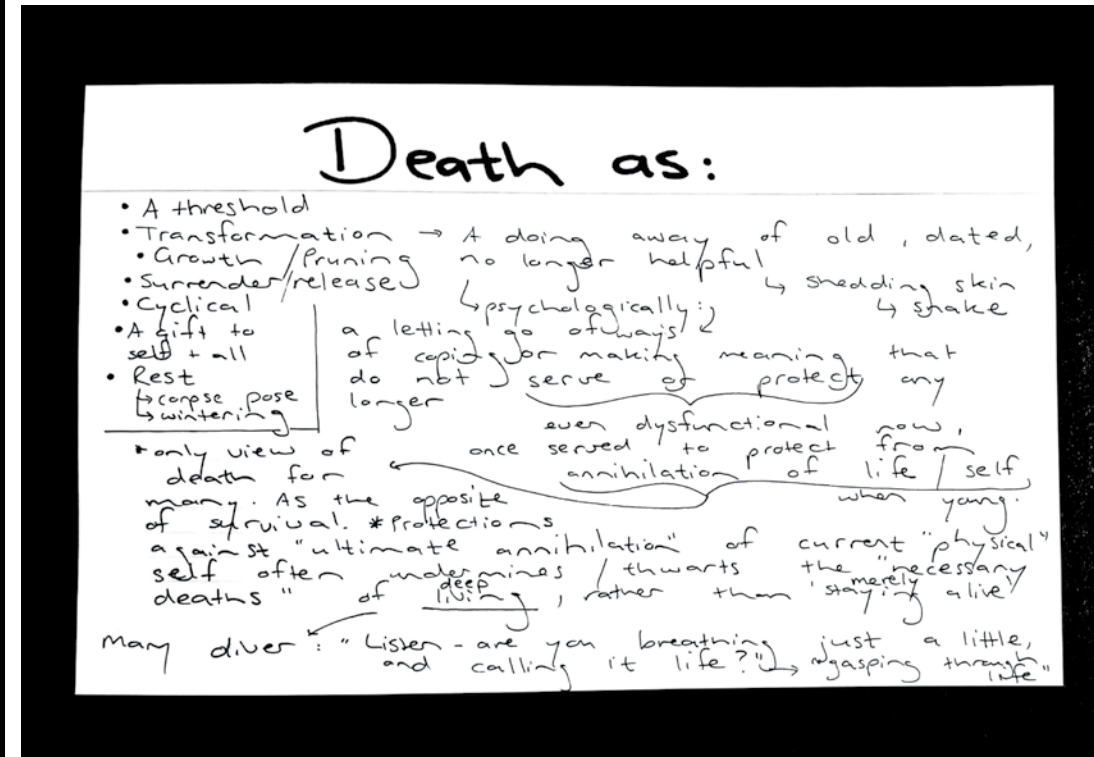 Death as:
• A threshold
• Transformation → A doing away of old, dated,
• Growth / Pruning no longer helpful
↳ shedding skin
• Surrender/release
↳ snake
• Cyclical
↳ psychologically:
• A gift to
self + all
• Rest
↳ corpse pose
↳ wintering
a letting go of ways
of coping or making meaning that
do not serve or protect any
longer
even dysfunctional now,
once served to protect from
annihilation of life / self
when young.
* only view of
death for
many. As the opposite
of survival. * Protections
against "ultimate annihilation" of current "physical"
self often undermines / thwarts the "necessary
deaths" of deep living, rather than 'merely staying alive'
Mary Oliver: "Listen - are you breathing just a little,
and calling it life?" → "gasping through
life"